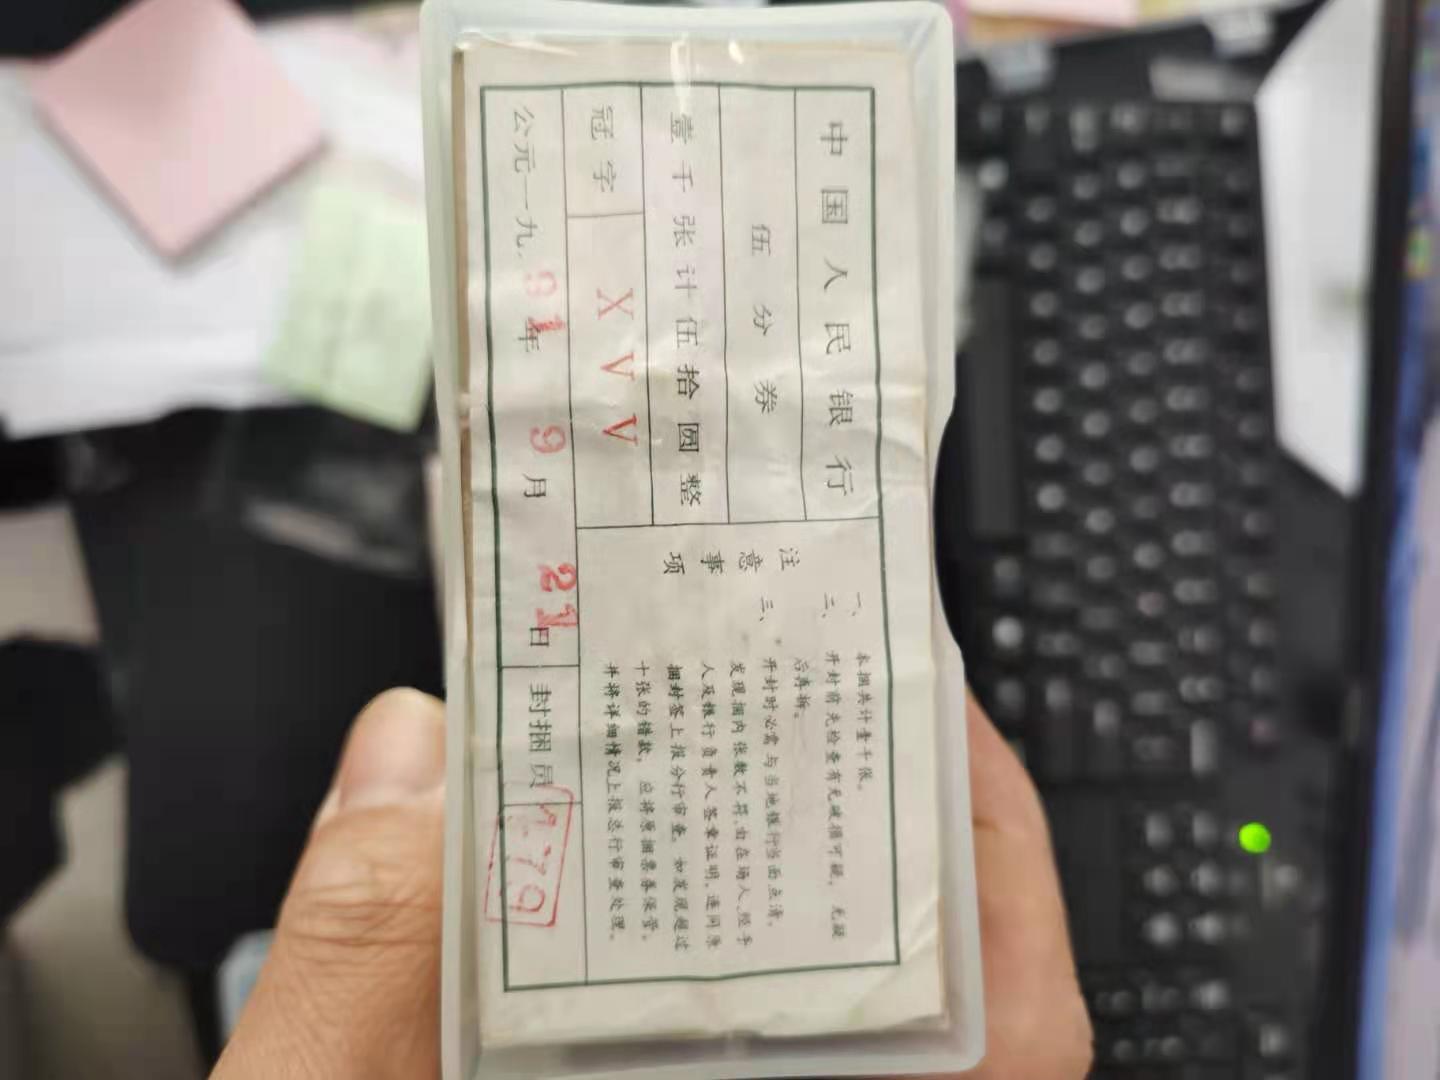 中国人民银行
伍分券
壹千张计伍拾圆整
冠字 X V V
公元一九.91年 9月 21日 封捆员 179
注意事项
一、本捆共计壹千张。
二、开封前先检查有无破损可疑,无疑
后再拆。
三、开封时必需与当地银行当面点清,
发现捆内张数不符,由在场人、经手
人及银行负责人签章证明,连同原
捆封签上报分行审查。如发现超过
十张的错款,应将原捆票券保管,
并将详细情况上报总行审查处理。